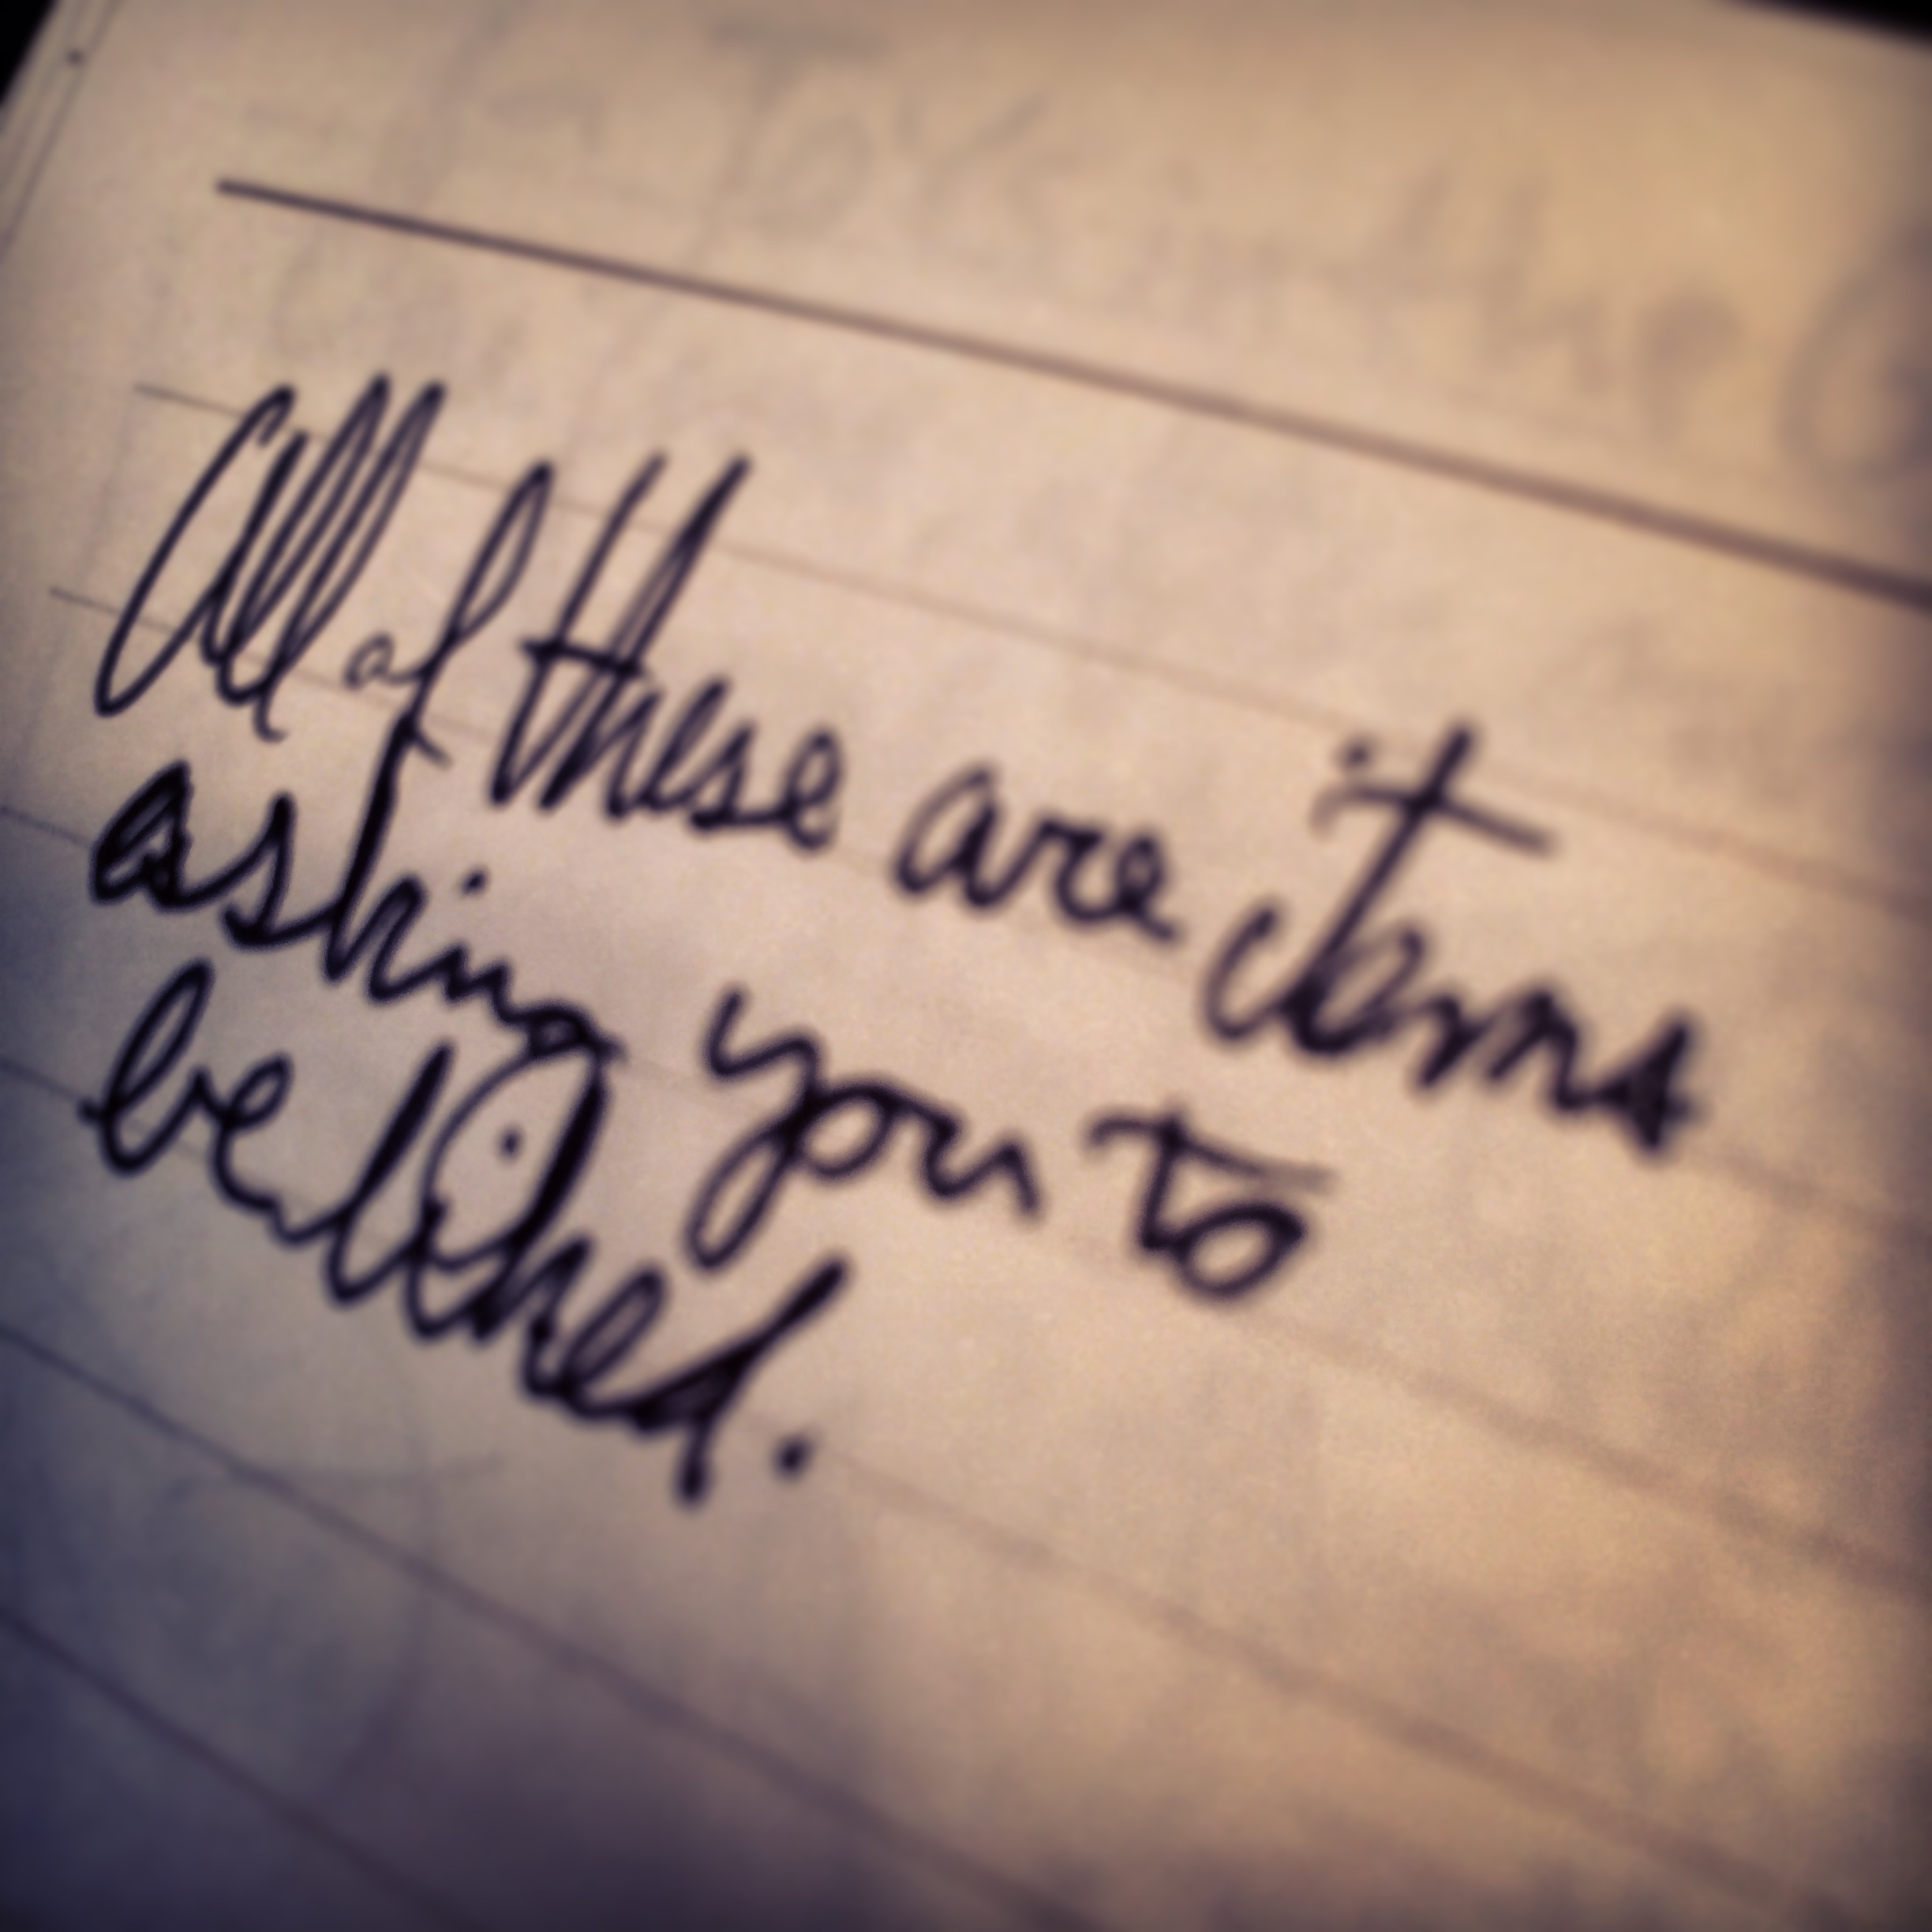 All of these are items
asking you to
be liked.